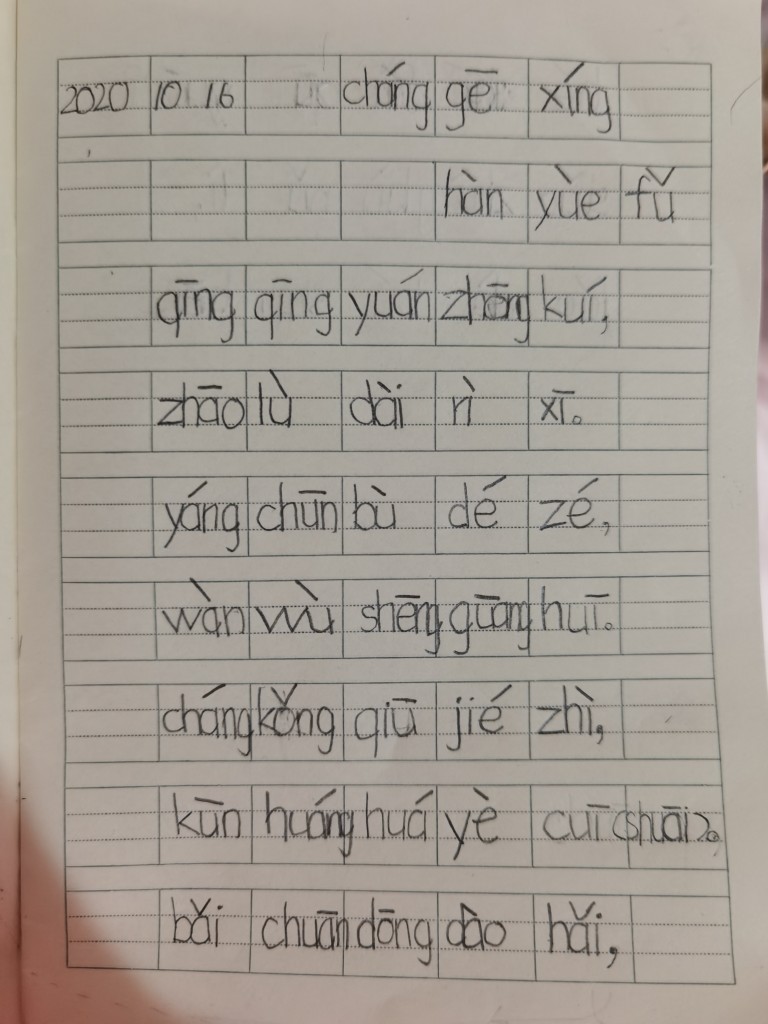 2020 10 16 cháng gē xíng
hàn yùe fǔ
qīng qīng yuán zhōng kuí,
zhāo lù dài rì xī。
yáng chūn bù dé zé,
wàn wù shēng guāng huī。
cháng kǒng qiū jié zhì,
kūn huáng huá yè cuī (shuāi)。
bǎi chuān dōng dào hǎi,